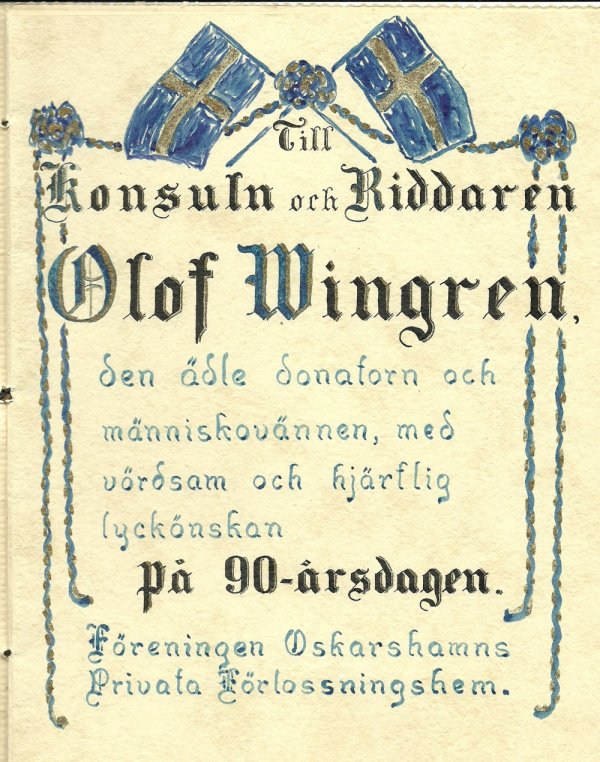 Till
Konsuln och Riddaren
Olof Wingren,
den ädle donatorn och
människovännen, med
vördsam och hjärtlig
lyckönskan
på 90-årsdagen.
Föreningen Oskarshamns
Privata Förlossningshem.